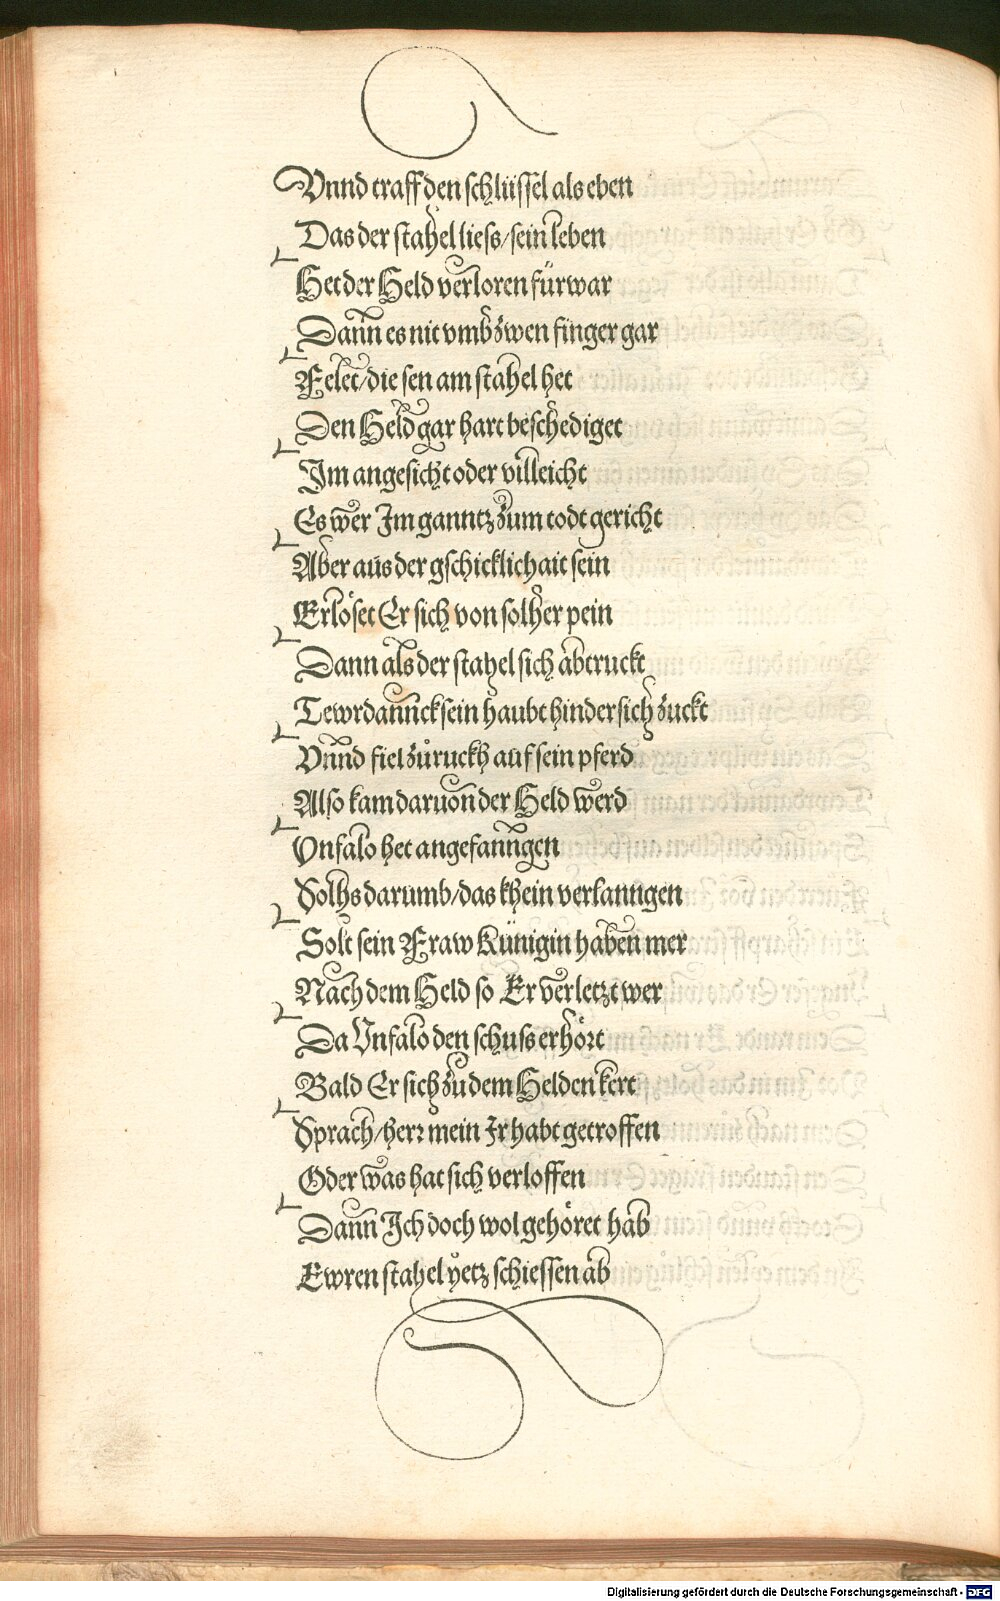 Vnnd traff den schlüssel als eben
Das der stahel liess/sein leben
Het der Held verloren fürwar
Dann es nit vmb zwen finger gar
Felet/die sen am stahel het
Den Held gar hart beschediget
Im angesicht oder villeicht
Es wer Im ganntz zum todt gericht
Aber aus der gschicklichait sein
Erlöset Er sich von solher pein
Dann als der stahel sich abtruckt
Tewrdannck sein haubt hindersich zuckt
Vnnd fiel zůruckh auf sein pferd
Also kam daruon der Held werd
Vnfalo het angefanngen
Solhs darumb/das khein verlanngen
Solt sein Fraw Künigin haben mer
Nach dem Held so Er verletzt wer
Da Vnfalo den schuss erhört
Bald Er sich zu dem Helden kert
Sprach/herr mein Ir habt getroffen
Oder was hat sich verloffen
Dann Ich doch wol gehöret hab
Ewren stahel yetz schiessen ab
Digitalisierung gefördert durch die Deutsche Forschungsgemeinschaft - DFG